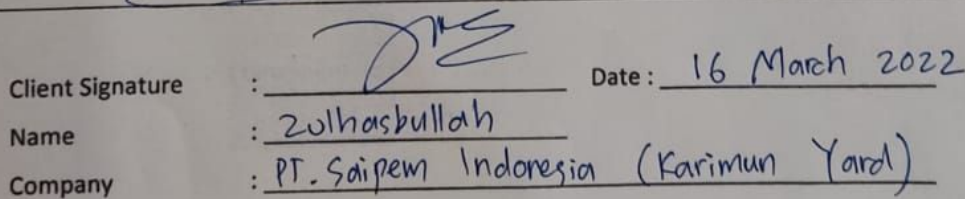 Client Signature : Date : 16 March 2022
Name : Zulhasbullah
Company : PT. Saipem Indonesia (Karimun Yard)